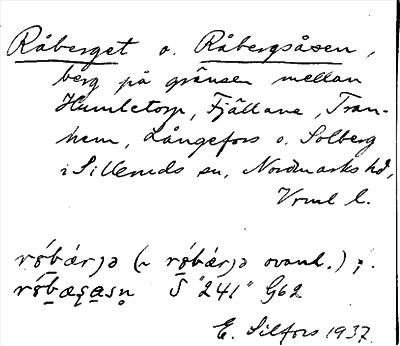 Råberget o. Råbergsåsen,
berg på gränsen mellan
Humletorp, Fjällane, Tran-
hem, Långefors o. Solberg
i Silleruds sn, Nordmarks hd,
Vrml l.
(~ ovanl.);
S "241" G62
E. Silfors 1937.